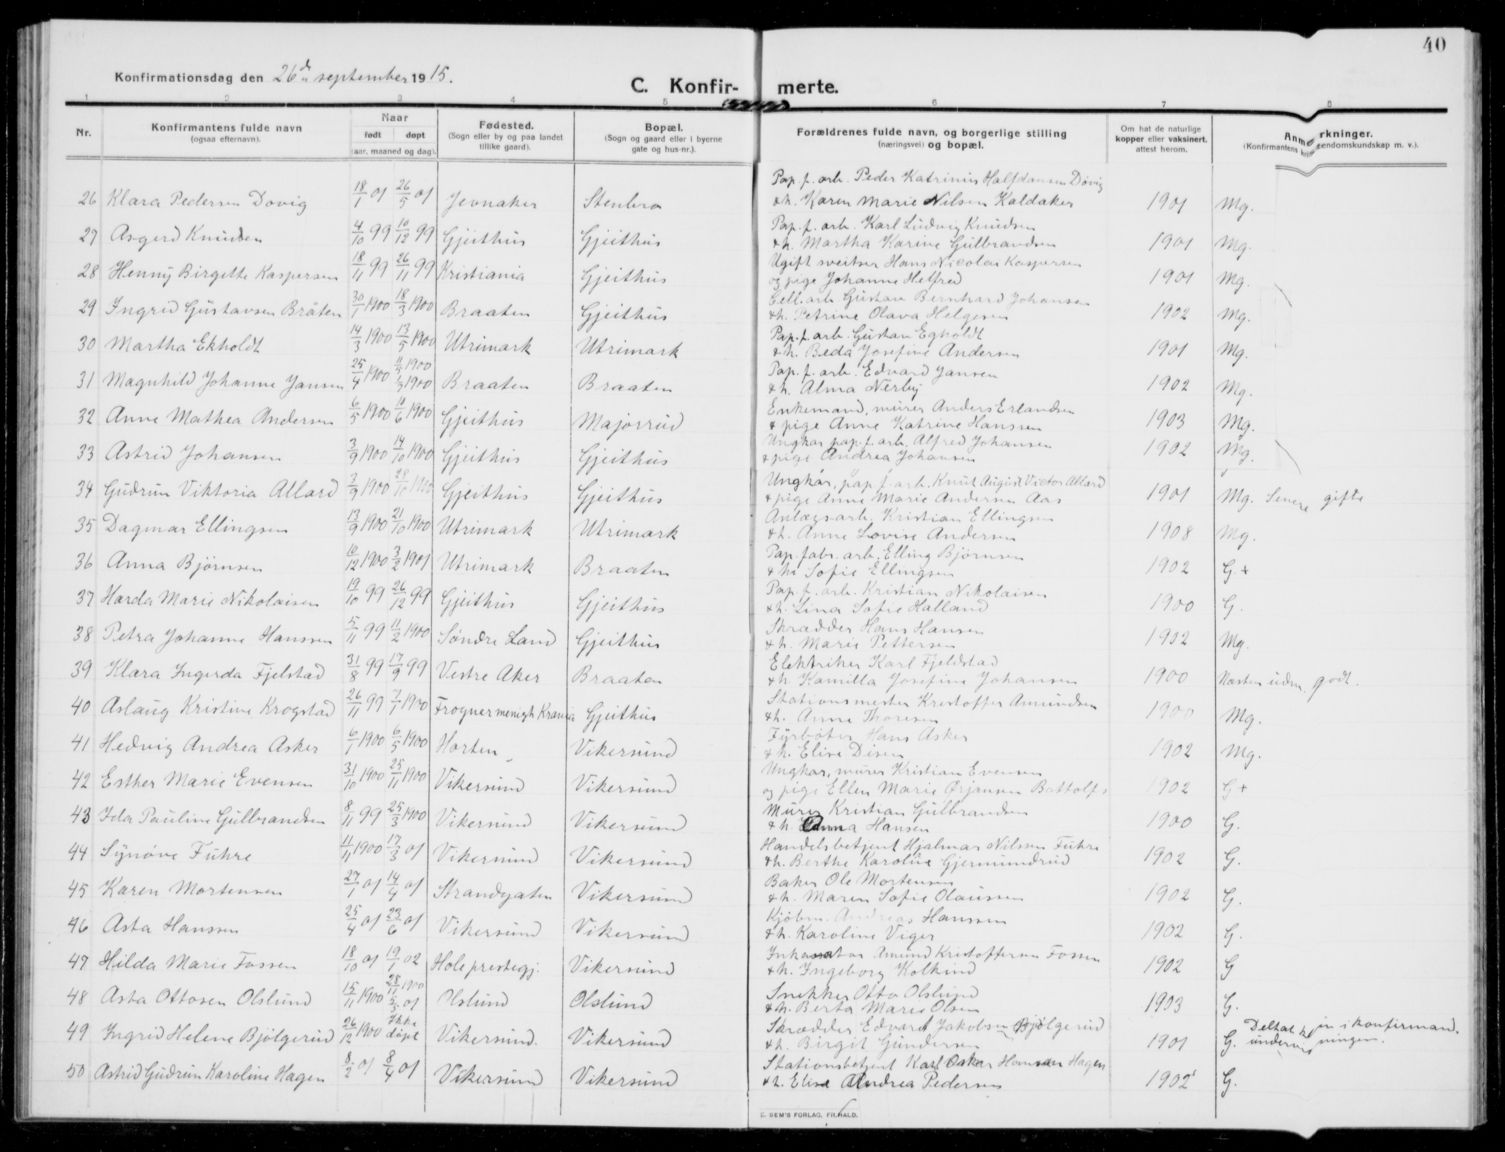 40
Konfirmationsdag den 26de september 1915.
C. Konfirmerte.
1 2 3 4 5 6 7 8
Nr. Konfirmantens fulde navn (ogsaa efternavn). Naar født døpt (aar, maaned og dag). Fødested. (Sogn eller by og paa landet tillike gaard). Bopæl. (Sogn og gaard eller i byerne gate og hus-nr.). Forældrenes fulde navn, og borgerlige stilling (næringsvei) og bopæl. Om hat de naturlige kopper eller vaksinert, attest herom. Anmerkninger. (Konfirmantens kristendomskundskap m. v.).
26 Klara Pedersen Dovig 18/1 01 26/5 01 Jevnaker Stenbro Pap. f. arb. Peder Katrinius Halfdansen Døvig
& h. Karen Marie Nilsen Kaldaker 1901 Mg.
27 Asgerd Knudsen 4/10 99 10/12 99 Gjeithus Gjeithus Pap. f. arb. Karl Ludvig Knudsen
& h. Martha Karine Gulbrandsen 1901 Mg.
28 Henny Birgitte Kaspersen 18/11 99 26/11 99 Kristiania Gjeithus Ugift sveitser Hans Nicolai Kaspersen
og pige Johanne Helfred 1901 Mg.
29 Ingrid Gustavsen Bråten 30/1 1900 18/3 1900 Braaten Gjeithus Cell. arb. Gustav Bernhard Johansen
& h. Petrine Olava Helgesen 1902 Mg.
30 Martha Ekholdt 14/3 1900 13/5 1900 Utrimark Utrimark Pap. f. arb. Gustav Egholdt
& h. Beda Josefine Andersen 1901 Mg.
31 Magnhild Johanne Jansen 25/4 1900 1900 1900 Braaten Braaten Pap. f. arb. Edvard Jansen
& h. Alma Nerby 1902 Mg.
32 Anne Mathea Andersen 6/5 1900 10/6 1900 Gjeithus Majorrud Enkemand, murer Anders Erlandsen
& pige Anne Katrine Hanssen 1903 Mg.
33 Astrid Johansen 3/9 1900 14/10 1900 Gjeithus Gjeithus Ungkar pap. f. arb. Alfred Johansen
& pige Andrea Johansen 1902 Mg.
34 Gudrun Viktoria Allard 7/9 1900 28/10 1900 Gjeithus Gjeithus Ungkar, pap. f. arb. Knut August Victor Allard
& pige Anne Marie Andersen Aas 1901 Mg. Senere gifte
35 Dagmar Ellingsen 13/9 1900 21/10 1900 Utrimark Utrimark Anlægsarb. Kristian Ellingsen
& h. Anne Lovise Andersen 1908 Mg.
36 Anna Bjørnsen 10/12 1900 3/2 1901 Utrimark Braaten Pap. fabr. arb. Elling Bjørnsen
& h. Sofie Ellingsen 1902 G +
37 Harda Marie Nikolaisen 19/10 99 26/12 99 Gjeithus Gjeithus Pap. f. arb. Kristian Nikolaisen
& h. Lina Sofie Halland 1900 G.
38 Petra Johanne Hanssen 5/11 99 11/2 1900 Søndre Land Gjeithus Skrædder Hans Hansen
& h. Marie Pettersen 1902 Mg.
39 Klara Ingerda Fjelstad 31/8 99 17/9 99 Vestre Aker Braaten Elektriker Karl Fjeldstad
& h. Kamilla Josefine Johansen 1900 Næsten udm. godt.
40 Aslaug Kristine Krogstad 26/11 99 7/1 1900 Frogner menigh. Krania Gjeithus Stationsmester Kristoffer Amundsen
& h. Anne Thoresen 1900 Mg.
41 Hedvig Andrea Asker 6/1 1900 6/5 1900 Horten Vikersund Fyrbøter Hans Asker
& h. Elise Disen 1902 Mg.
42 Esther Marie Evensen 31/10 1900 25/11 1900 Vikersund Vikersund Ungkar, murer Kristian Evensen
og pige Ellen Marie Ørjansen Bottolfs 1902 G +
43 Ida Pauline Gulbrandsen 8/11 99 25/3 1900 Vikersund Vikersund Murer Kristian Gulbrandsen
& h. Anna Hansen 1900 G.
44 Synøve Fuhre 11/11 1900 17/3 01 Vikersund Vikersund Handelsbetjent Hjalmar Nilsen Fuhre
& h. Berthe Karoline Gjermundrud 1902 G.
45 Karen Mortensen 27/1 01 14/4 01 Strandgaten Vikersund Baker Ole Mortensen
& h. Maren Sofie Olaussen 1902 G.
46 Asta Hanssen 25/4 01 23/6 01 Vikersund Vikersund Kjøbm. Andreas Hanssen
& h. Karoline Viger 1902 G.
47 Hilda Marie Fossen 18/10 01 19/1 02 Hole prestegj. Vikersund Inkassator Amund Kristoffersen Fossen
& h. Ingeborg Kolkind 1902 G
48 Asta Ottosen Olslund 15/11 1900 28/11 1900 5/5 01 Olslund Olslund Snekker Otto Olslund
& h. Berta Marie Olsen 1903 G.
49 Ingrid Helene Bjølgerud 26/12 1900 Ikke døpt Vikersund. Vikersund Skrædder Edvard Jakobsen Bjølgerud
& h. Birgit Gundersen 1901 G. Deltat i konfirmand.
undervisningen.
50 Astrid Gudrun Karoline Hagen 8/2 01 8/4 01 Vikersund Vikersund Stationsbetjent Karl Oskar Hansen Hagen
& h. Elise Andrea Pedersen 1902 G.
E. SEM'S FORLAG, FR.HALD.